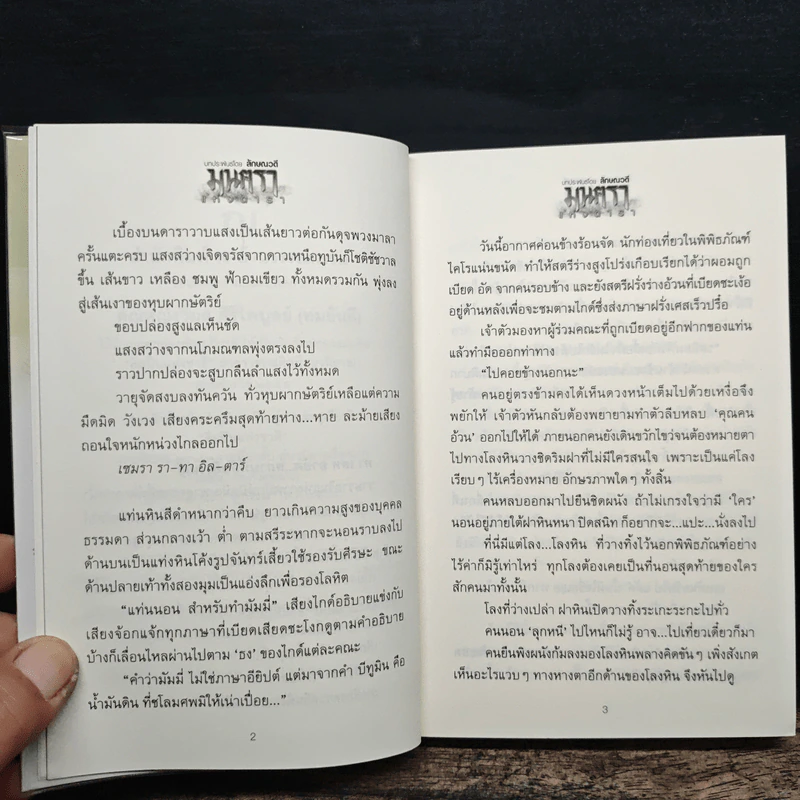 บทประพันธ์โดย ลักษณวดี
มนตรา
เบื้องบนดาราวาบแสงเป็นเส้นยาวต่อกันดุจพวงมาลา
ครั้นแตะครบ แสงสว่างเจิดจรัสจากดาวเหนือทูบันก็โชติชัชวาล
ขึ้น เส้นขาว เหลือง ชมพู ฟ้าอมเขียว ทั้งหมดรวมกัน พุ่งลง
สู่เส้นเงาของหุบผากษัตริย์
ขอบปล่องสูงแลเห็นชัด
แสงสว่างจากนโภมณฑลพุ่งตรงลงไป
ราวปากปล่องจะสูบกลืนลำแสงไว้ทั้งหมด
วายุจัดสงบลงทันควัน ทั่วหุบผากษัตริย์เหลือแต่ความ
มืดมิด วังเวง เสียงคระครึมสุดท้ายห่าง...หาย ละม้ายเสียง
ถอนใจหนักหน่วงไกลออกไป
เซมรา รา-ทา อิล-ตาร์
แท่นหินสีดำหนากว่าคืบ ยาวเกินความสูงของบุคคล
ธรรมดา ส่วนกลางเว้า ต่ำ ตามสรีระหากจะนอนราบลงไป
ด้านบนเป็นแท่งหินโค้งรูปจันทร์เสี้ยวใช้รองรับศีรษะ ขณะ
ด้านปลายเท้าทั้งสองมุมเป็นแอ่งลึกเพื่อรองโลหิต
“แท่นนอน สำหรับทำมัมมี่” เสียงไกด์อธิบายแข่งกับ
เสียงจ้อกแจ้กทุกภาษาที่เบียดเสียดชะโงกดูตามคำอธิบาย
บ้างก็เลื่อนไหลผ่านไปตาม ‘ธง’ ของไกด์แต่ละคณะ
“คำว่ามัมมี่ ไม่ใช่ภาษาอียิปต์ แต่มาจากคำ บีทูมิน คือ
น้ำมันดิน ที่ชโลมศพมิให้เน่าเปื่อย...”
2
บทประพันธ์โดย ลักษณวดี
มนตรา
วันนี้อากาศค่อนข้างร้อนจัด นักท่องเที่ยวในพิพิธภัณฑ์
ไคโรแน่นขนัด ทำให้สตรีร่างสูงโปร่งเกือบเรียกได้ว่าผอมถูก
เบียด อัด จากคนรอบข้าง และยังสตรีฝรั่งร่างอ้วนที่เบียดชะเง้อ
อยู่ด้านหลังเพื่อจะชมตามไกด์ซึ่งส่งภาษาฝรั่งเศสเร็วปรื๋อ
เจ้าตัวมองหาผู้ร่วมคณะที่ถูกเบียดอยู่อีกฟากของแท่น
แล้วทำมือออกท่าทาง
“ไปคอยข้างนอกนะ”
คนอยู่ตรงข้ามคงได้เห็นดวงหน้าเต็มไปด้วยเหงื่อจึง
พยักให้ เจ้าตัวหันกลับต้องพยายามทำตัวลีบหลบ ‘คุณคน
อ้วน’ ออกไปให้ได้ ภายนอกคนยังเดินขวักไขว่จนต้องหมายตา
ไปทางโลงหินวางชิดริมฝาที่ไม่มีใครสนใจ เพราะเป็นแค่โลง
เรียบๆ ไร้เครื่องหมาย อักษรภาพใดๆ ทั้งสิ้น
คนหลบออกมาไปยืนชิดผนัง ถ้าไม่เกรงใจว่ามี ‘ใคร’
นอนอยู่ภายใต้ฝาหินหนา ปิดสนิท ก็อยากจะ...แปะ...นั่งลงไป
ที่นี่มีแต่โลง...โลงหิน ที่วางทิ้งไว้นอกพิพิธภัณฑ์อย่าง
ไร้ค่าก็มิรู้เท่าไหร่ ทุกโลงต้องเคยเป็นที่นอนสุดท้ายของใคร
สักคนมาทั้งนั้น
โลงที่ว่างเปล่า ฝาหินเปิดวางทิ้งระเกะระกะไปทั่ว
คนนอน ‘ลุกหนี’ ไปไหนก็ไม่รู้ อาจ...ไปเที่ยวเดี๋ยวก็มา
คนยืนพิงผนังก้มลงมองโลงหินพลางคิดขันๆ เพิ่งสังเกต
เห็นอะไรแวบๆ ทางหางตาอีกด้านของโลงหิน จึงหันไปดู
3